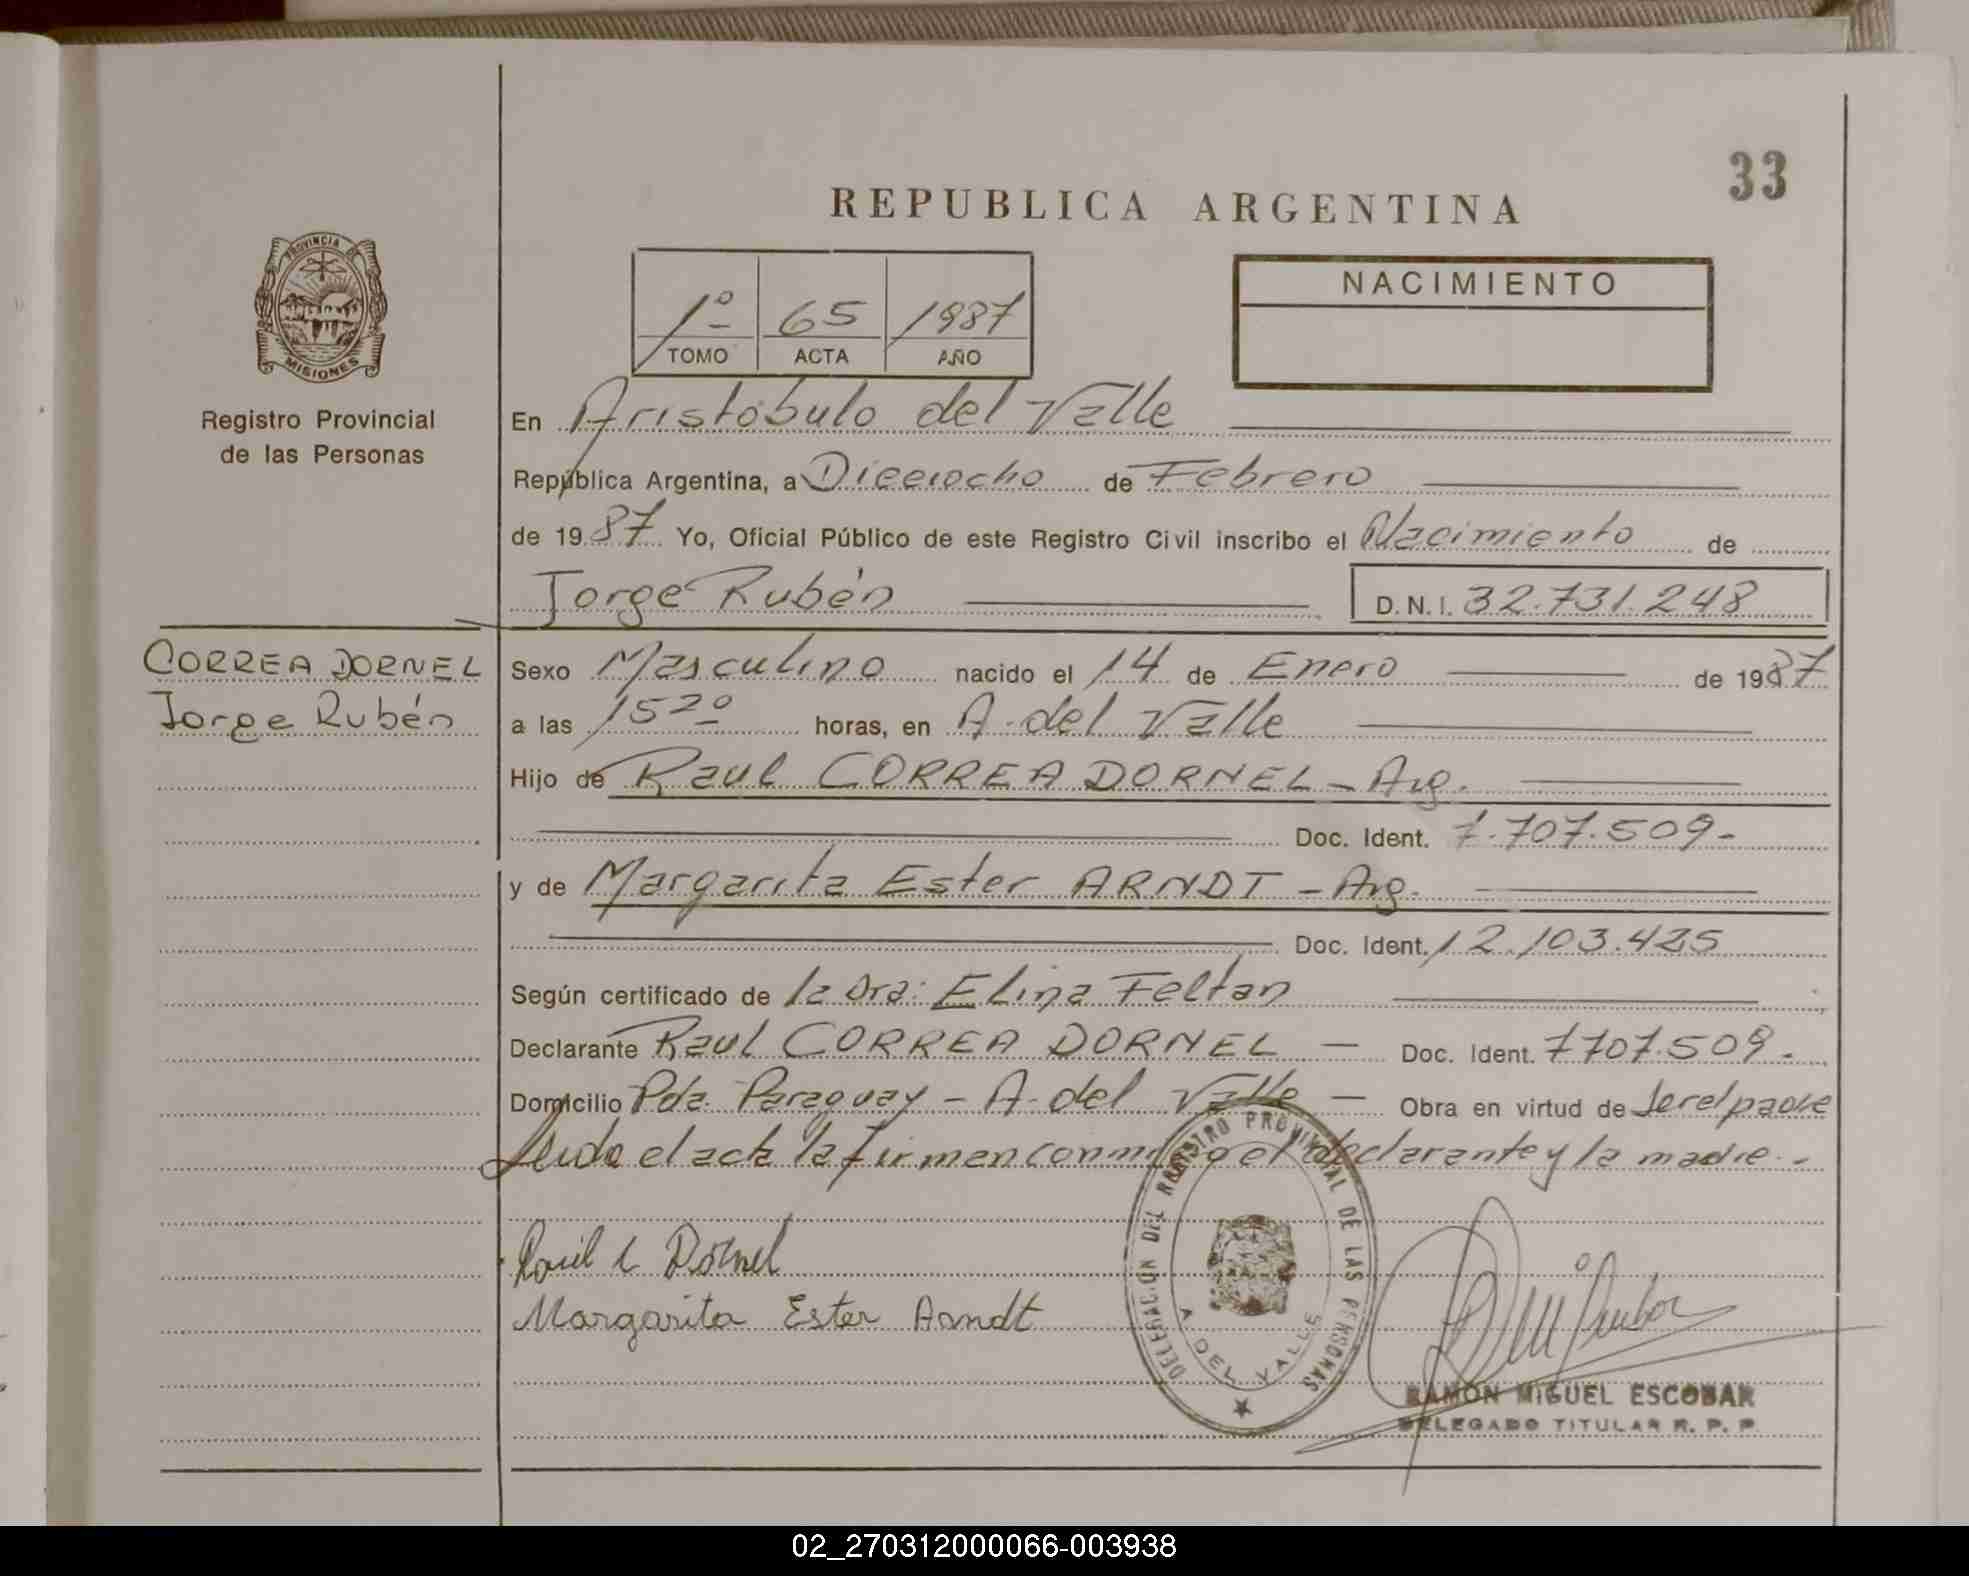 33
REPUBLICA ARGENTINA
PROVINCIA DE
MISIONES
Registro Provincial
de las Personas
1º 65 1987
TOMO ACTA AÑO
NACIMIENTO
En Aristóbulo del Valle
República Argentina, a Dieciocho de Febrero
de 1987 Yo, Oficial Público de este Registro Civil inscribo el Nacimiento de
Jorge Rubén D.N.I. 32.731.248
CORREA DORNEL
Jorge Rubén
Sexo Masculino nacido el 14 de Enero de 1987
a las 15²⁰ horas, en A. del Valle
Hijo de Raul CORREA DORNEL - Arg.
Doc. Ident. 7.707.509-
y de Margarita Ester ARNDT - Arg.
Doc. Ident. 12.103.425
Según certificado de la Dra: Elina Feltan
Declarante Raul CORREA DORNEL - Doc. Ident. 7707.509.
Domicilio Pda. Paraguay - A. del Valle - Obra en virtud de ser el padre
Leida el acta la firman conmigo el declarante y la madre.-
Raúl C Dornel
Margarita Ester Arndt
DELEGACION DEL REGISTRO PROVINCIAL DE LAS PERSONAS
A DEL VALLE
RAMON MIGUEL ESCOBAR
DELEGADO TITULAR R. P. P.
02_270312000066-003938